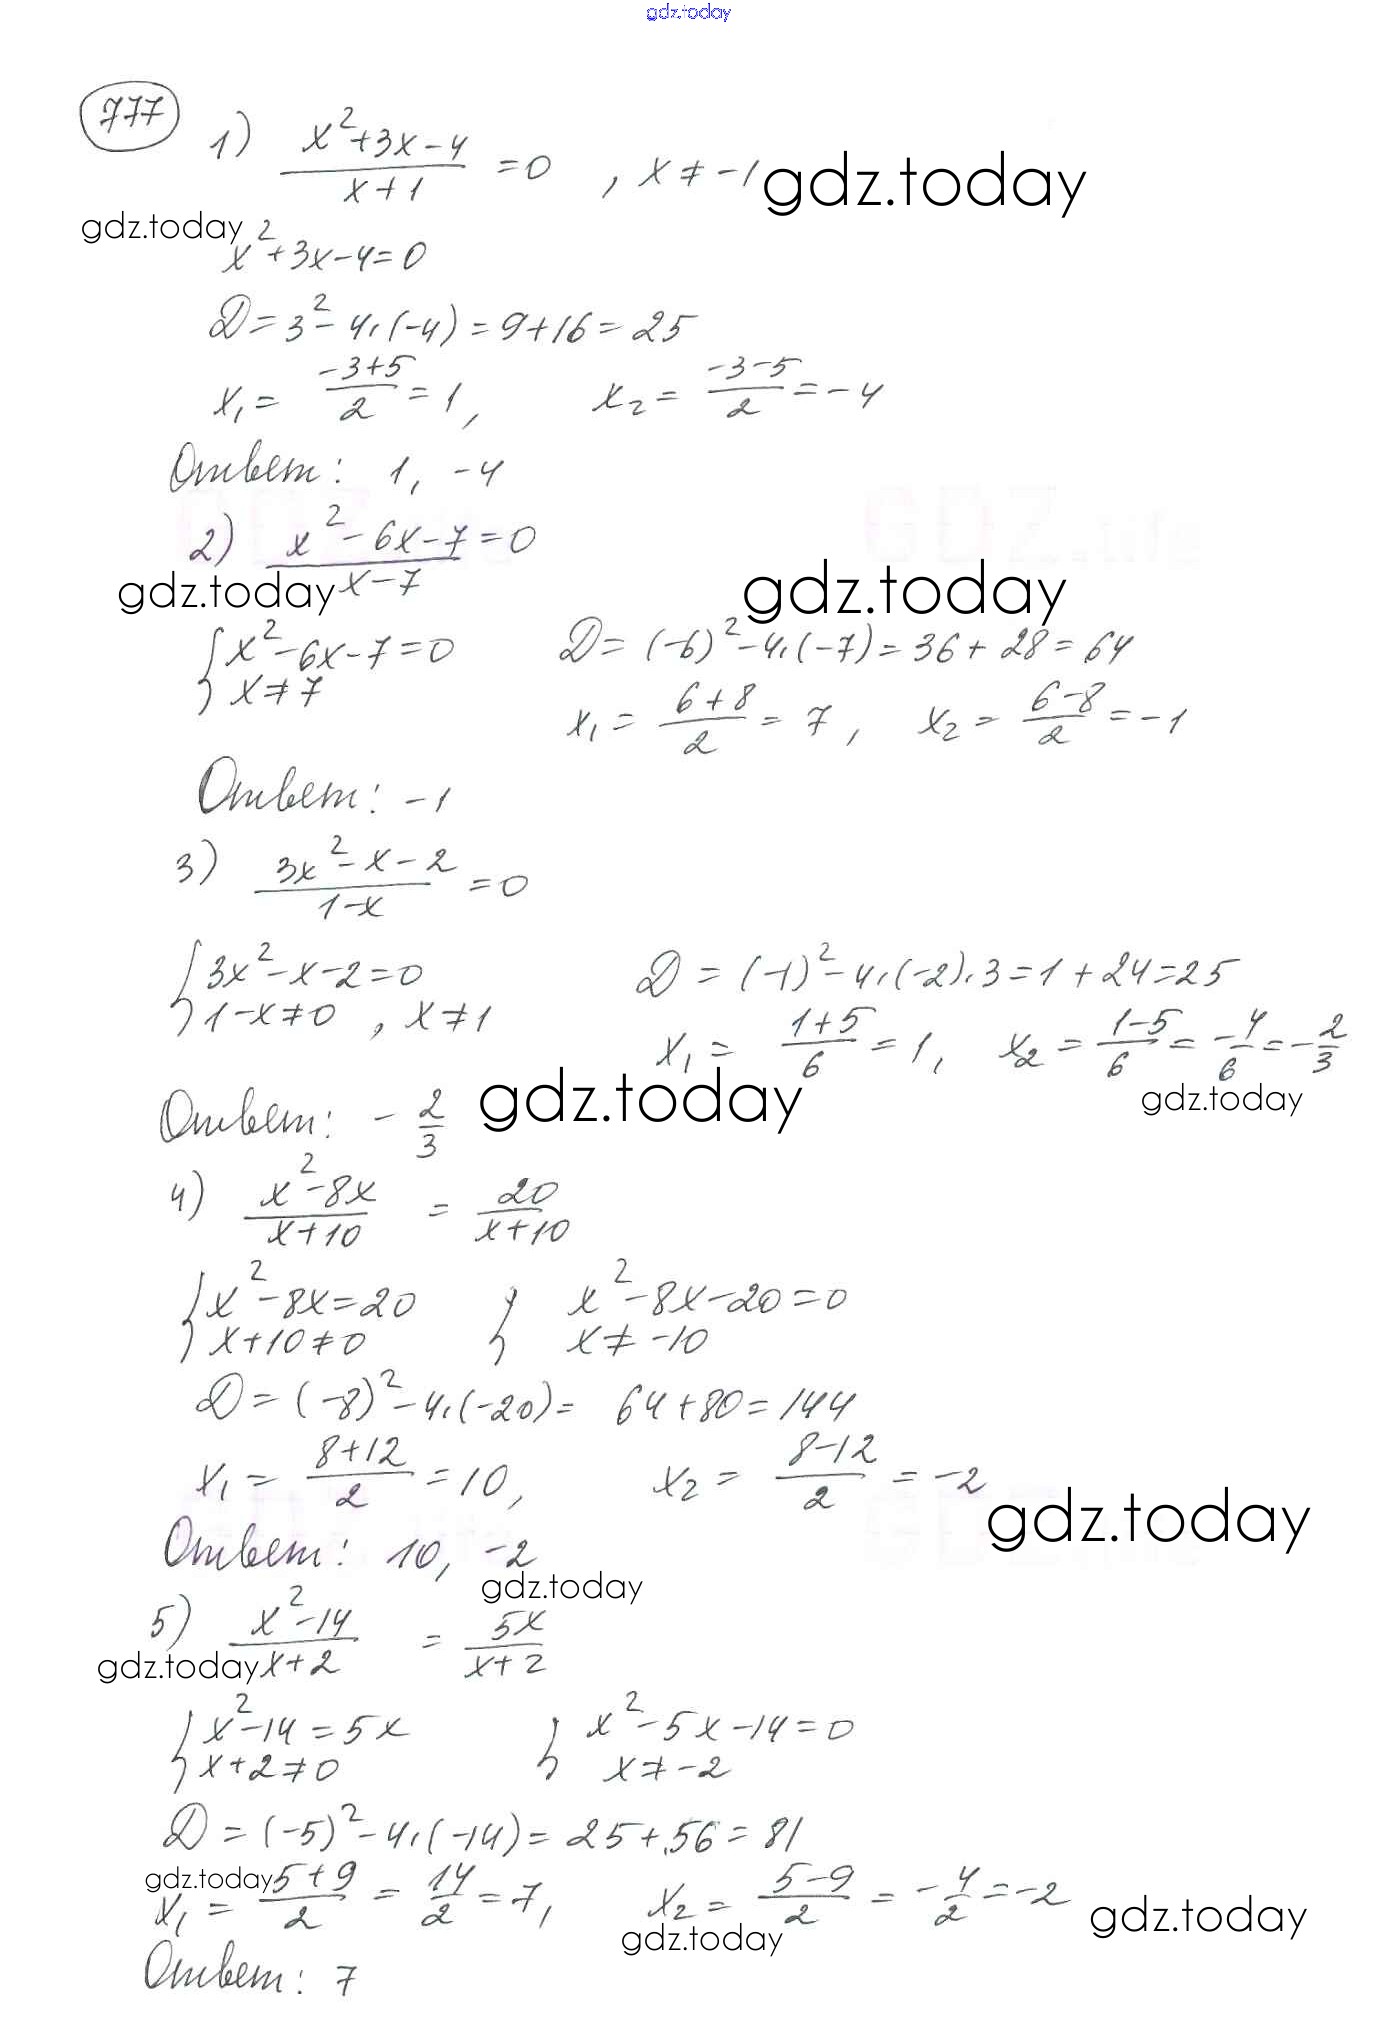 gdz.today
777
1) (x²+3x-4)/(x+1) =0 , x≠-1 gdz.today
gdz.today
x²+3x-4=0
D=3²-4·(-4)=9+16=25
x₁= (-3+5)/2 =1, x₂= (-3-5)/2 =-4
Ответ: 1, -4
GDZ.life
2) (x²-6x-7)/(x-7) =0
gdz.today gdz.today
{x²-6x-7=0 D=(-6)²-4·(-7)=36+28=64
x≠7
x₁= (6+8)/2 =7, x₂= (6-8)/2 =-1
Ответ: -1
3) (3x²-x-2)/(1-x) =0
{3x²-x-2=0 D=(-1)²-4·(-2)·3=1+24=25
1-x≠0 , x≠1
x₁= (1+5)/6 =1, x₂= (1-5)/6 = -4/6 = -2/3
gdz.today gdz.today
Ответ: -2/3
4) (x²-8x)/(x+10) = 20/(x+10)
{x²-8x=20 { x²-8x-20=0
x+10≠0 x≠-10
D=(-8)²-4·(-20)= 64+80=144
x₁= (8+12)/2 =10, x₂= (8-12)/2 =-2
gdz.today
Ответ: 10, -2
gdz.today
5) (x²-14)/(x+2) = 5x/(x+2)
gdz.today
{x²-14=5x { x²-5x-14=0
x+2≠0 x≠-2
D=(-5)²-4·(-14)=25+56=81
gdz.today
x₁= (5+9)/2 = 14/2 =7, x₂= (5-9)/2 = -4/2 =-2
gdz.today gdz.today
Ответ: 7